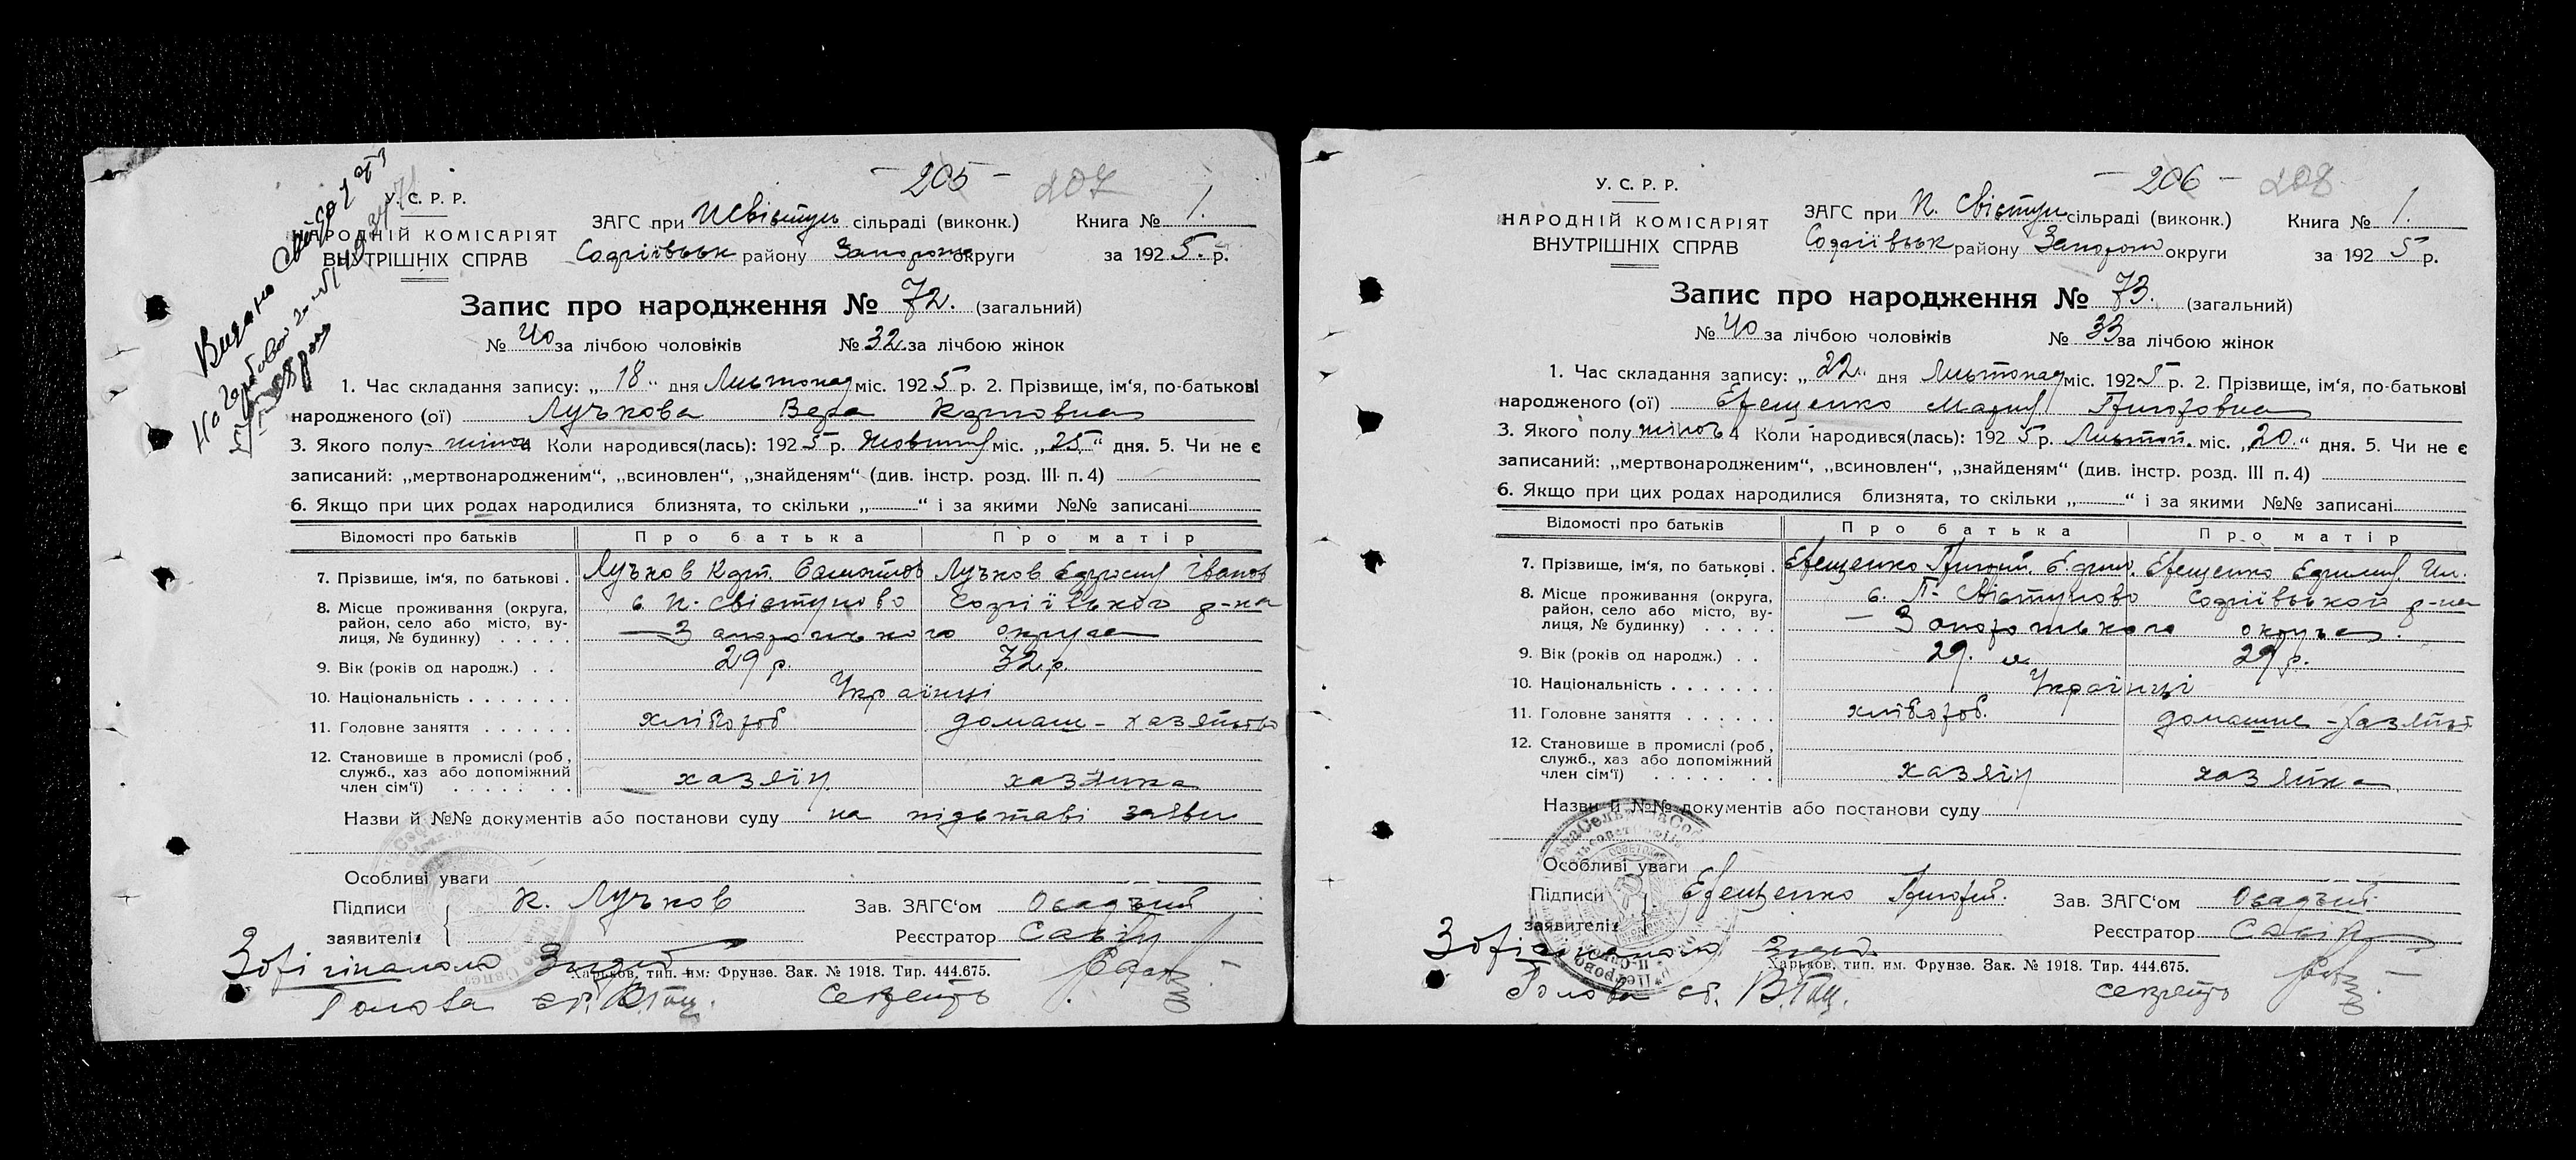 - 205 - 207
У. С. Р. Р.
НАРОДНІЙ КОМІСАРІЯТ
ВНУТРІШНІХ СПРАВ
ЗАГС при П Свістун сільраді (виконк.) Книга № 1.
Софіївськ району Запорож округи за 192 5 р.
Запис про народження № 72. (загальний)
№ 40 за лічбою чоловіків № 32 за лічбою жінок
1. Час складання запису: „ 18 “ дня Листопад міс. 192 5 р. 2. Прізвище, ім‘я, по-батькові
народженого (ої) Лучкова Вера
3. Якого полу - жіноч 4 Коли народився(лась): 192 5 р. Жовтня міс. „ 25 “ дня. 5. Чи не є
записаний: „мертвонародженим“, „всиновлен“, „знайденям“ (див. інстр. розд. III п. 4)
6. Якщо при цих родах народилися близнята, то скільки „ “ і за якими №№ записані
Відомості про батьків Про батька Про матір
7. Прізвище, ім‘я, по батькові . Лучков Лучков Іванов
8. Місце проживання (округа, район, село або місто, вулиця, № будинку) с. П. Свістуново Софіївського р-на
Запорожького округа
9. Вік (років од народж.) . . 29 р. 32 р.
10. Національність . . . . . . . Українці
11. Головне заняття . . . . . . хлібороб домаш - хазяйство
12. Становище в промислі (роб, служб., хаз або допоміжний член сім‘ї) . . . . . . . хазяїн хазяйка
Назви й №№ документів або постанови суду на підставі заяви
Особливі уваги
Підписи К. Лучков Зав. ЗАГС‘ом Осадчий
заявителів Реєстратор Савін
Харьков, тип. им. Фрунзе. Зак. № 1918. Тир. 444.675.
Голова Секретр
- 206 - 208
У. С. Р. Р.
НАРОДНІЙ КОМІСАРІЯТ
ВНУТРІШНІХ СПРАВ
ЗАГС при П. Свістун сільраді (виконк.) Книга № 1.
Софіївськ району Запорож округи за 192 5 р.
Запис про народження № 73. (загальний)
№ 40 за лічбою чоловіків № 33 за лічбою жінок
1. Час складання запису: „ 22 “ дня Листопад міс. 192 5 р. 2. Прізвище, ім‘я, по-батькові
народженого (ої) Ефещенко Мария Григоровна
3. Якого полу жіноч 4 Коли народився(лась): 192 5 р. Листоп. міс. „ 20 “ дня. 5. Чи не є
записаний: „мертвонародженим“, „всиновлен“, „знайденям“ (див. інстр. розд. III п. 4)
6. Якщо при цих родах народилися близнята, то скільки „ “ і за якими №№ записані
Відомості про батьків Про батька Про матір
7. Прізвище, ім‘я, по батькові . Ефещенко Григорій Ефещенко
8. Місце проживання (округа, район, село або місто, вулиця, № будинку) с. П - Свістуново Софіївського р-на
- Запорожького округа.
9. Вік (років од народж.) . . 29. 29 р.
10. Національність . . . . . . . Українці
11. Головне заняття . . . . . . хлібороб. домашнє - хазяйст
12. Становище в промислі (роб, служб., хаз або допоміжний член сім‘ї) . . . . . . . хазяїн хазяйка
Назви й №№ документів або постанови суду
Особливі уваги
Підписи Ефещенко Григорій. Зав. ЗАГС‘ом Осадчий
заявителів Реєстратор Савін
Харьков, тип. им. Фрунзе. Зак. № 1918. Тир. 444.675.
Голова секретр